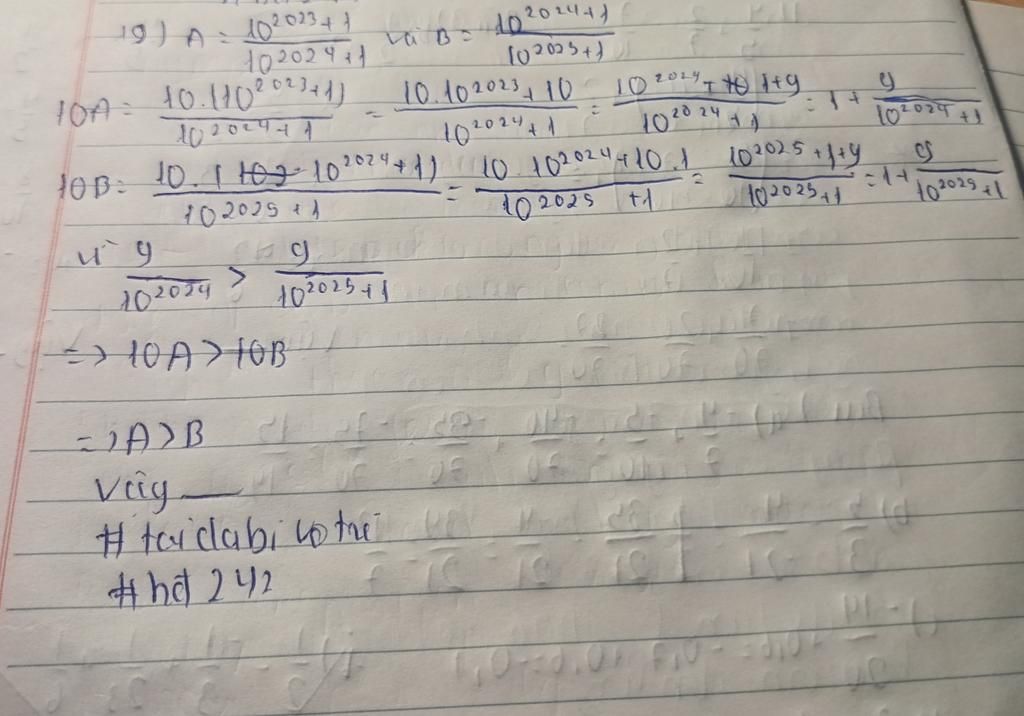 19) A = \frac{10^{2023}+1}{10^{2024}+1} và B = \frac{10^{2024}+1}{10^{2025}+1}
10A = \frac{10.(10^{2023}+1)}{10^{2024}+1} = \frac{10.10^{2023}+10}{10^{2024}+1} = \frac{10^{2024}+1+9}{10^{2024}+1} = 1 + \frac{9}{10^{2024}+1}
10B = \frac{10.(10^{2024}+1)}{10^{2025}+1} = \frac{10.10^{2024}+10.1}{10^{2025}+1} = \frac{10^{2025}+1+9}{10^{2025}+1} = 1 + \frac{9}{10^{2025}+1}
Vì \frac{9}{10^{2024}} > \frac{9}{10^{2025}+1}
=> 10A > 10B
=> A > B
Vậy —
# taidabivotri
# hd 242